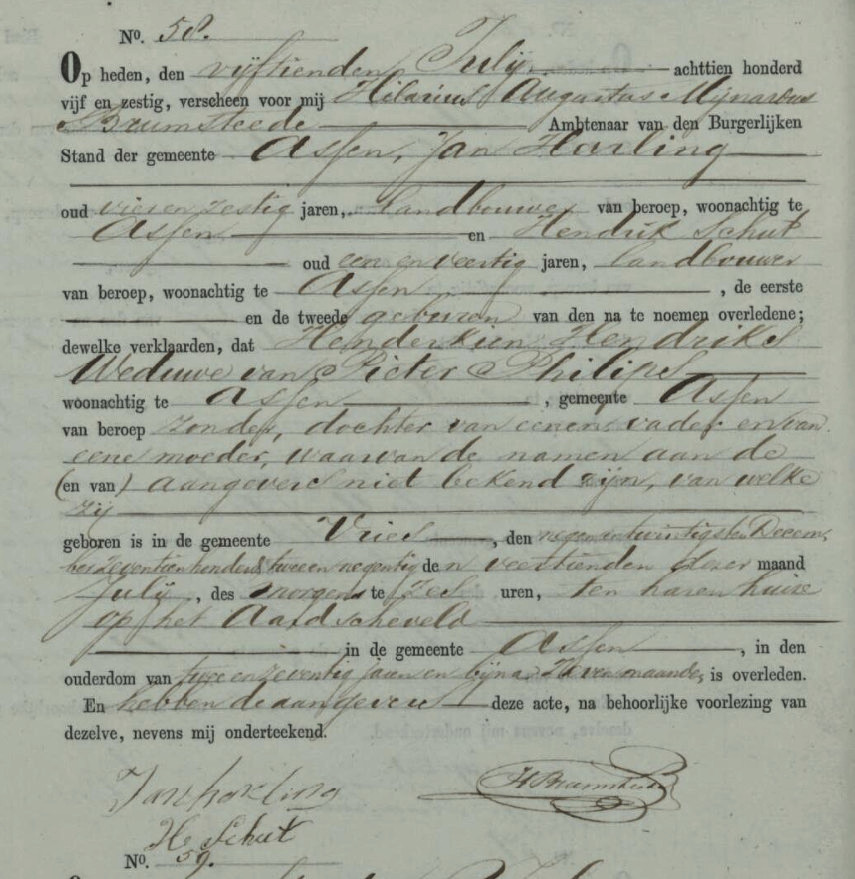 No. 58.
Op heden, den vijftienden Julij achttien honderd
vijf en zestig, verscheen voor mij Hilarius Augustus Mijnardus
Brumsteede Ambtenaar van den Burgerlijken
Stand der gemeente Assen, Jan Horling
oud vier en zestig jaren, landbouwer van beroep, woonachtig te
Assen en Hendrik Schut
oud een en veertig jaren, landbouwer
van beroep, woonachtig te Assen, de eerste
en de tweede geburen van den na te noemen overledene;
dewelke verklaarden, dat Henderkien Hendriks
Weduwe van Pieter Philips
woonachtig te Assen, gemeente Assen
van beroep zonder, dochter van eenen vader en van
eene moeder, waarvan de namen aan de
(en van) aangevers niet bekend zijn, van welke
zij
geboren is in de gemeente Vries, den negen en twintigsten Decem,
ber zeventien honderd twee en negentig den veertienden dezer maand
Julij, des morgens te zes uren, ten haren huize
op het Aardscheveld
in de gemeente Assen, in den
ouderdom van twee en zeventig jaren en bijna zeven maanden, is overleden.
En hebben de aangevers deze acte, na behoorlijke voorlezing van
dezelve, nevens mij onderteekend.
Jan horling
H Schut
No. 59.